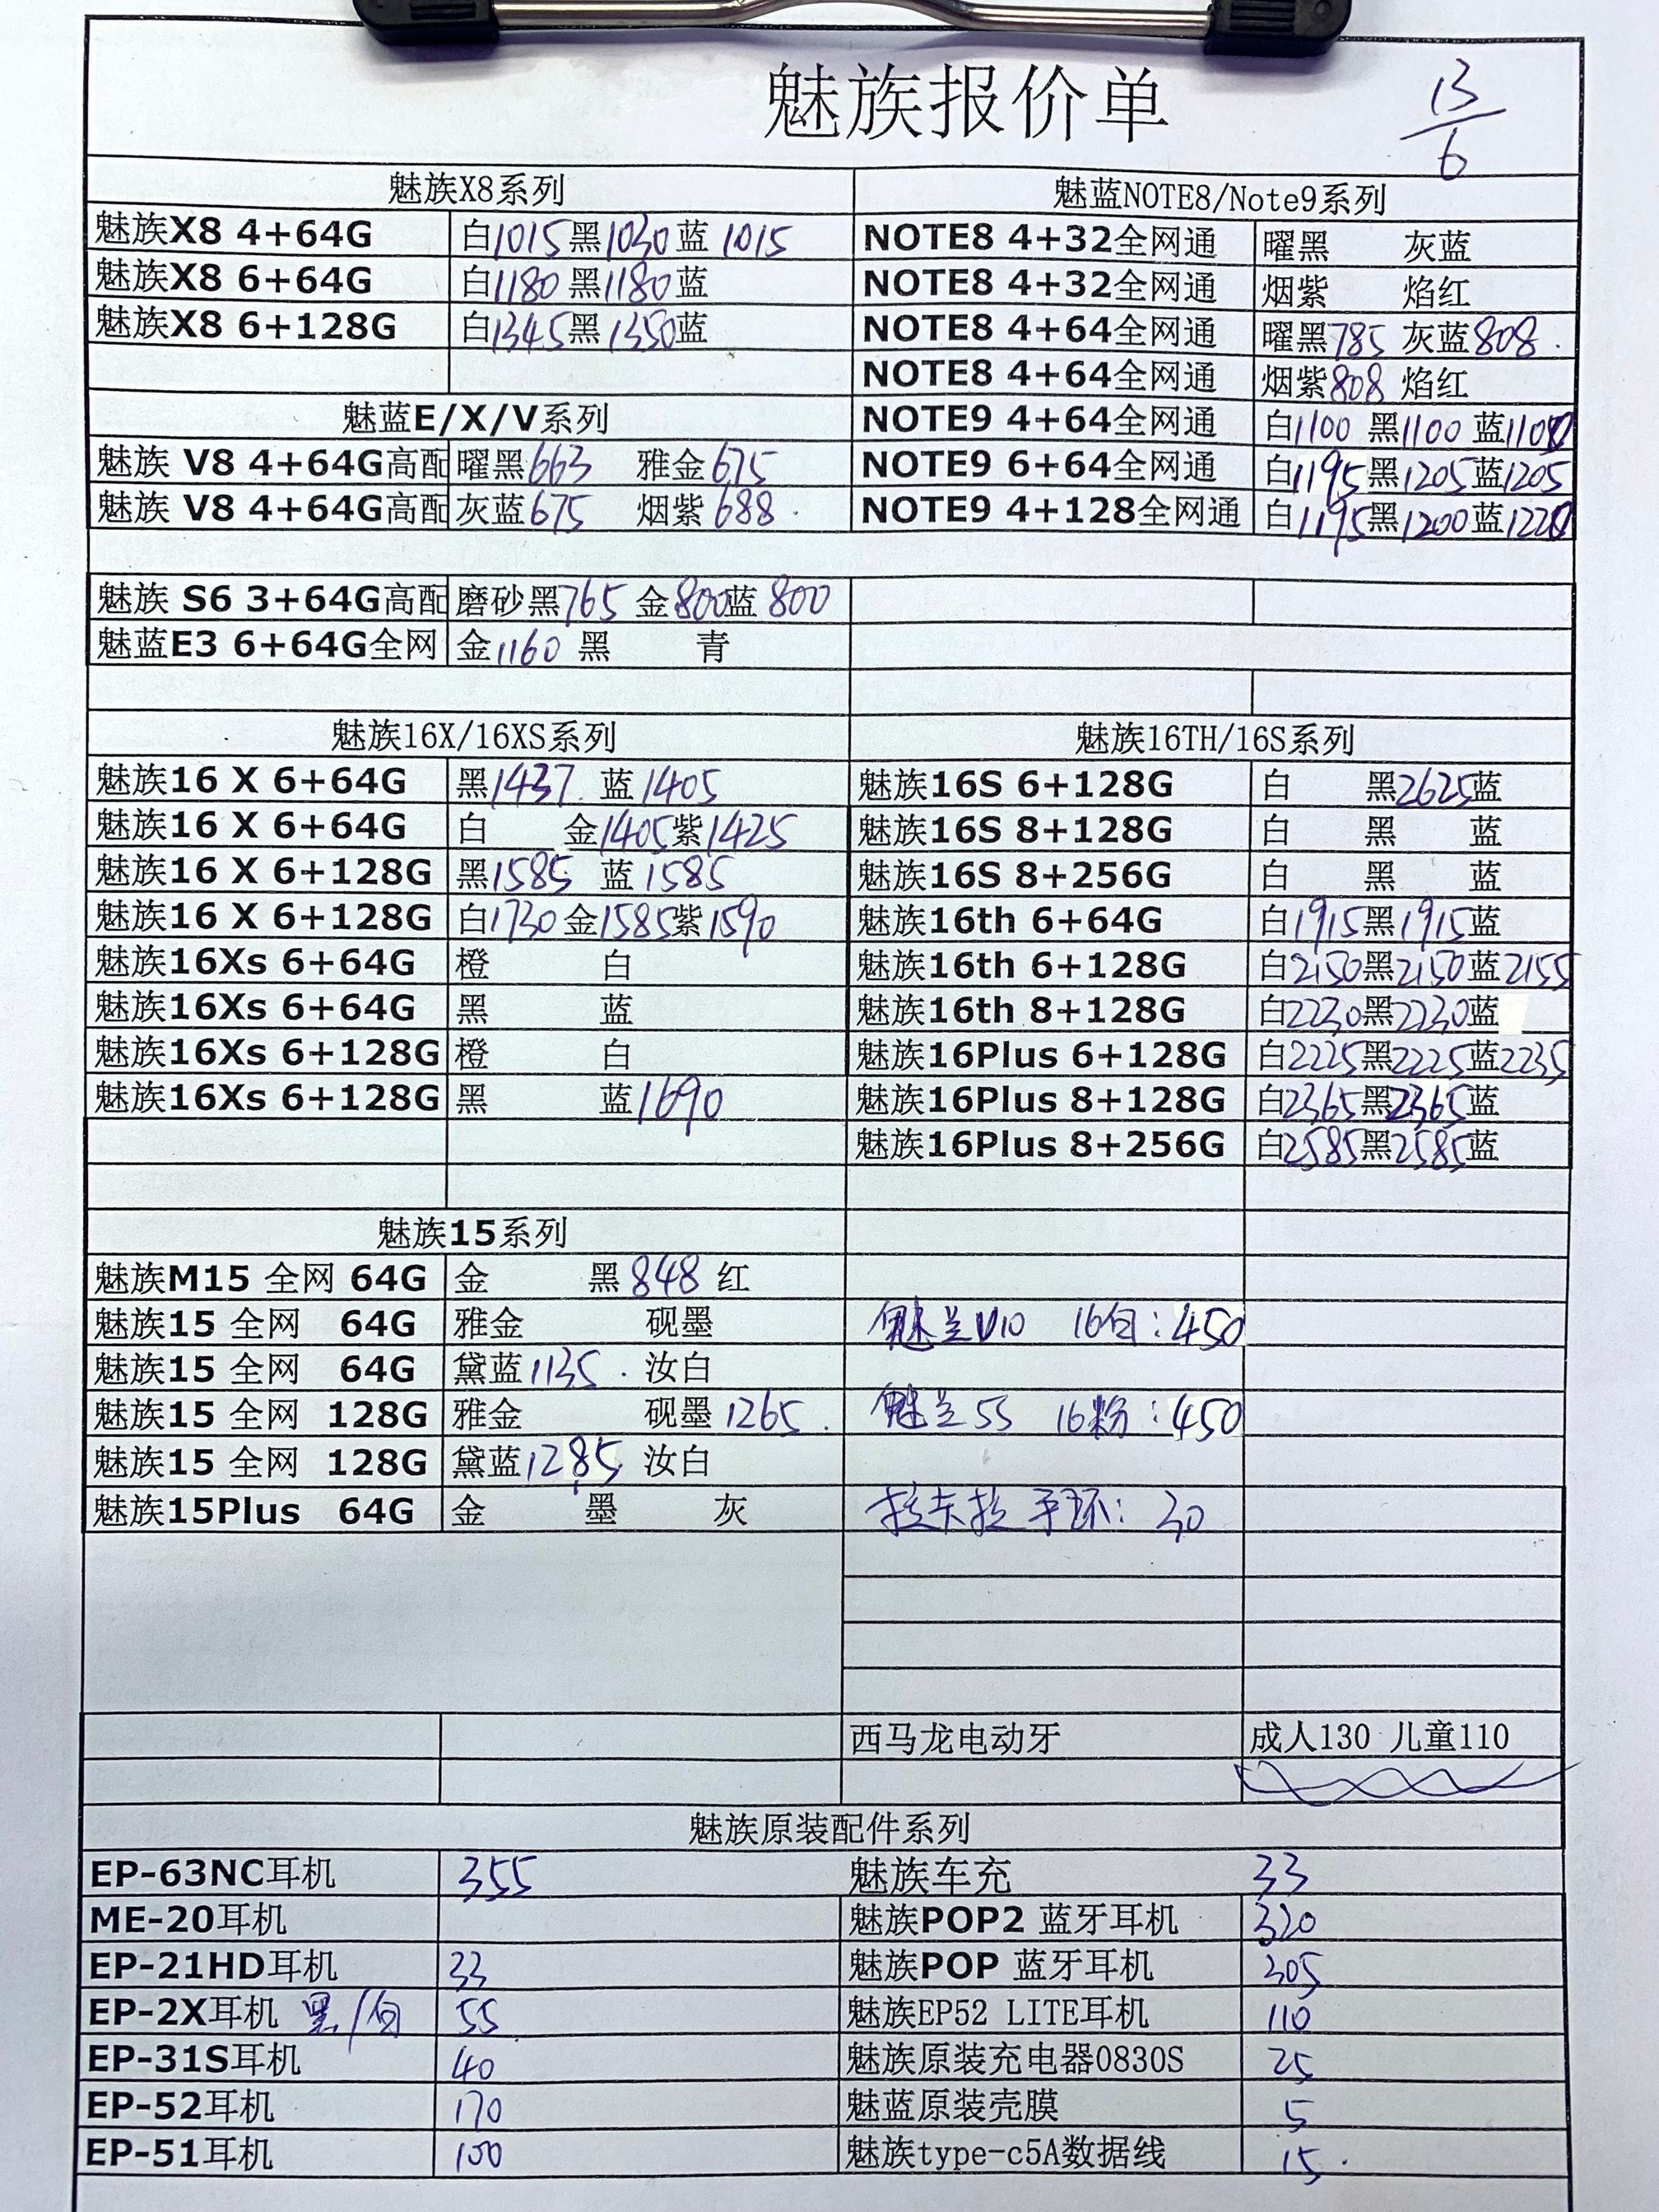 魅族报价单
13/6
魅族X8系列
魅族X8 4+64G 白1015 黑1030 蓝1015
魅族X8 6+64G 白1180 黑1180 蓝
魅族X8 6+128G 白1345 黑1350 蓝
魅蓝E/X/V系列
魅族 V8 4+64G高配 曜黑663 雅金675
魅族 V8 4+64G高配 灰蓝675 烟紫688
魅族 S6 3+64G高配 磨砂黑765 金800 蓝800
魅蓝E3 6+64G全网 金1160 黑 青
魅蓝NOTE8/Note9系列
NOTE8 4+32全网通 曜黑 灰蓝
NOTE8 4+32全网通 烟紫 焰红
NOTE8 4+64全网通 曜黑785 灰蓝808
NOTE8 4+64全网通 烟紫808 焰红
NOTE9 4+64全网通 白1100 黑1100 蓝1100
NOTE9 6+64全网通 白1195 黑1205 蓝1205
NOTE9 4+128全网通 白1195 黑1200 蓝1220
魅族16X/16XS系列
魅族16 X 6+64G 黑1437 蓝1405
魅族16 X 6+64G 白 金1405 紫1425
魅族16 X 6+128G 黑1585 蓝1585
魅族16 X 6+128G 白1730 金1585 紫1590
魅族16Xs 6+64G 橙 白
魅族16Xs 6+64G 黑 蓝
魅族16Xs 6+128G 橙 白
魅族16Xs 6+128G 黑 蓝1690
魅族16TH/16S系列
魅族16S 6+128G 白 黑2625 蓝
魅族16S 8+128G 白 黑 蓝
魅族16S 8+256G 白 黑 蓝
魅族16th 6+64G 白1915 黑1915 蓝
魅族16th 6+128G 白2150 黑2150 蓝2155
魅族16th 8+128G 白2230 黑2230 蓝
魅族16Plus 6+128G 白2225 黑2225 蓝2235
魅族16Plus 8+128G 白2365 黑2365 蓝
魅族16Plus 8+256G 白2585 黑2585 蓝
魅族15系列
魅族M15 全网 64G 金 黑848 红
魅族15 全网 64G 雅金 砚墨
魅族15 全网 64G 黛蓝1135 汝白
魅族15 全网 128G 雅金 砚墨1265
魅族15 全网 128G 黛蓝1285 汝白
魅族15Plus 64G 金 墨 灰
魅兰U10 16白:450
魅兰5S 16粉:450
拉卡拉手环: 30
西马龙电动牙 成人130 儿童110
魅族原装配件系列
EP-63NC耳机 355 魅族车充 33
ME-20耳机 魅族POP2 蓝牙耳机 320
EP-21HD耳机 33 魅族POP 蓝牙耳机 305
EP-2X耳机 黑/白 55 魅族EP52 LITE耳机 110
EP-31S耳机 40 魅族原装充电器0830S 25
EP-52耳机 170 魅蓝原装壳膜 5
EP-51耳机 100 魅族type-c5A数据线 15